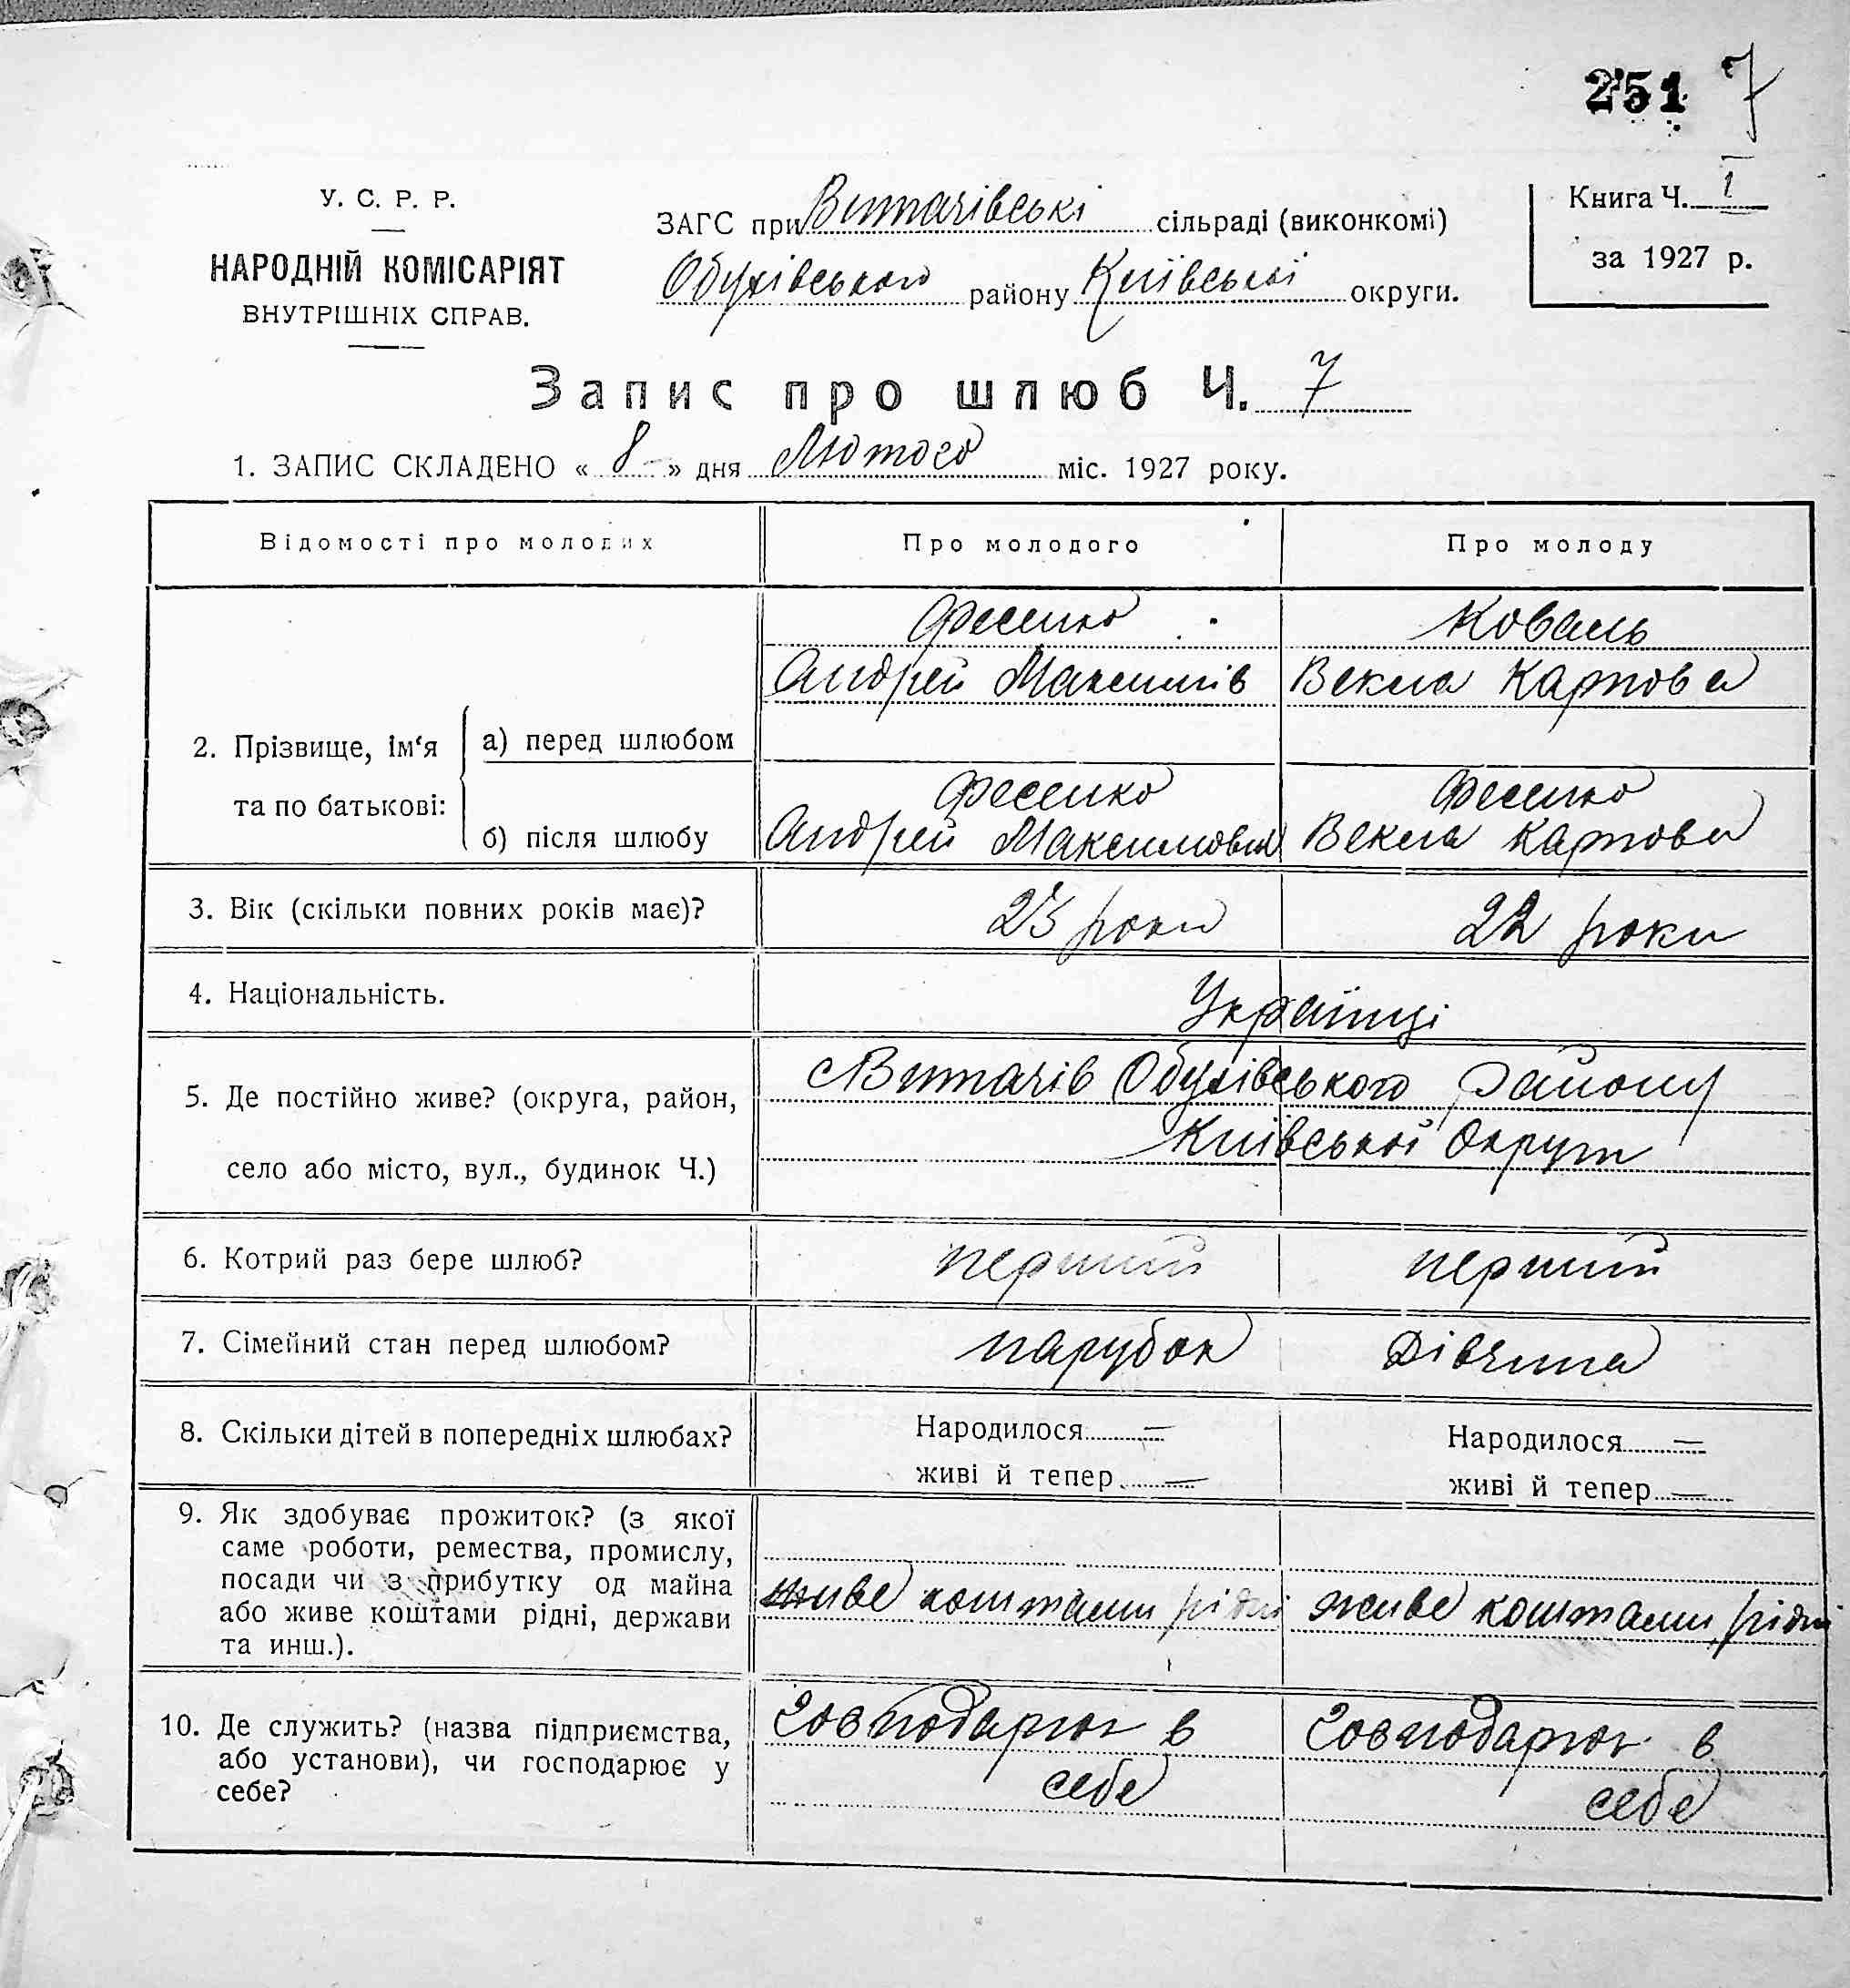 251 7
У. С. Р. Р.
НАРОДНІЙ КОМІСАРІЯТ
ВНУТРІШНІХ СПРАВ.
ЗАГС при Витачівські сільраді (виконкомі)
Обухівського району Київської округи.
Книга Ч. I
за 1927 р.
Запис про шлюб Ч. 7
1. ЗАПИС СКЛАДЕНО « 8 » дня Лютого міс. 1927 року.
Відомості про молодих Про молодого Про молоду
Фесенко Коваль
Андрей Максимів Векла Карпова
2. Прізвище, ім‘я та по батькові:
а) перед шлюбом
Фесенко Фесенко
б) після шлюбу Андрей Максимович Векла Карпова
3. Вік (скільки повних років має)? 23 роки 22 роки
4. Національність. Українці
5. Де постійно живе? (округа, район, село або місто, вул., будинок Ч.)
с Витачів Обухівського Району
Київської Округи
6. Котрий раз бере шлюб? перший перший
7. Сімейний стан перед шлюбом? парубок Дівчина
8. Скільки дітей в попередніх шлюбах? Народилося — Народилося —
живі й тепер — живі й тепер —
9. Як здобуває прожиток? (з якої
саме роботи, ремества, промислу,
посади чи з прибутку од майна
або живе коштами рідні, держави
та инш.).
живе коштами рідні живе коштами рідні
10. Де служить? (назва підприємства,
або установи), чи господарює у
себе?
Господарює в Господарює в
себе себе